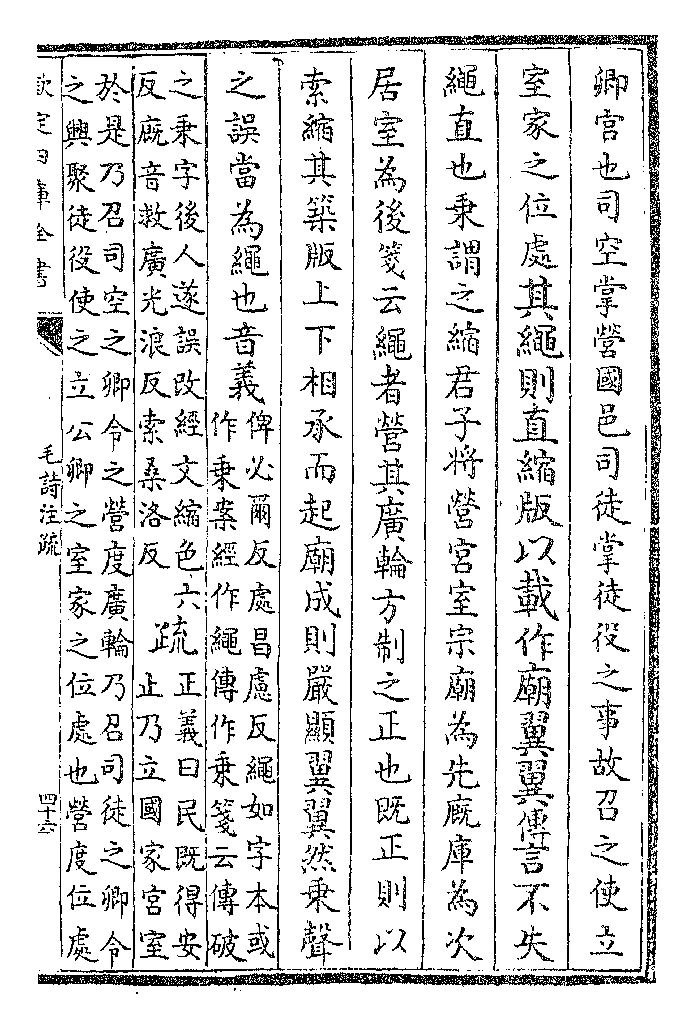 卿官也司空掌營國邑司徒掌徒役之事故召之使立
室家之位處其繩則直縮版以載作廟翼翼傳言不失
繩直也乗謂之縮君子將營宮室宗廟為先廐庫為次
居室為後箋云繩者營其廣輪方制之正也既正則以
索縮其築版上下相承而起廟成則嚴顯翼翼然乗聲
之誤當為繩也音義
俾必爾反處昌慮反繩如字本或
作乗案經作繩傳作乗箋云傳破
之乗字後人遂誤改經文縮色六
反廐音救廣光浪反索桑洛反
疏
正義曰民既得安
止乃立國家宮室
於是乃召司空之卿令之營度廣輪乃召司徒之卿令
之興聚徒役使之立公卿之室家之位處也營度位處
欽定四庫全書
毛詩注疏
四十六